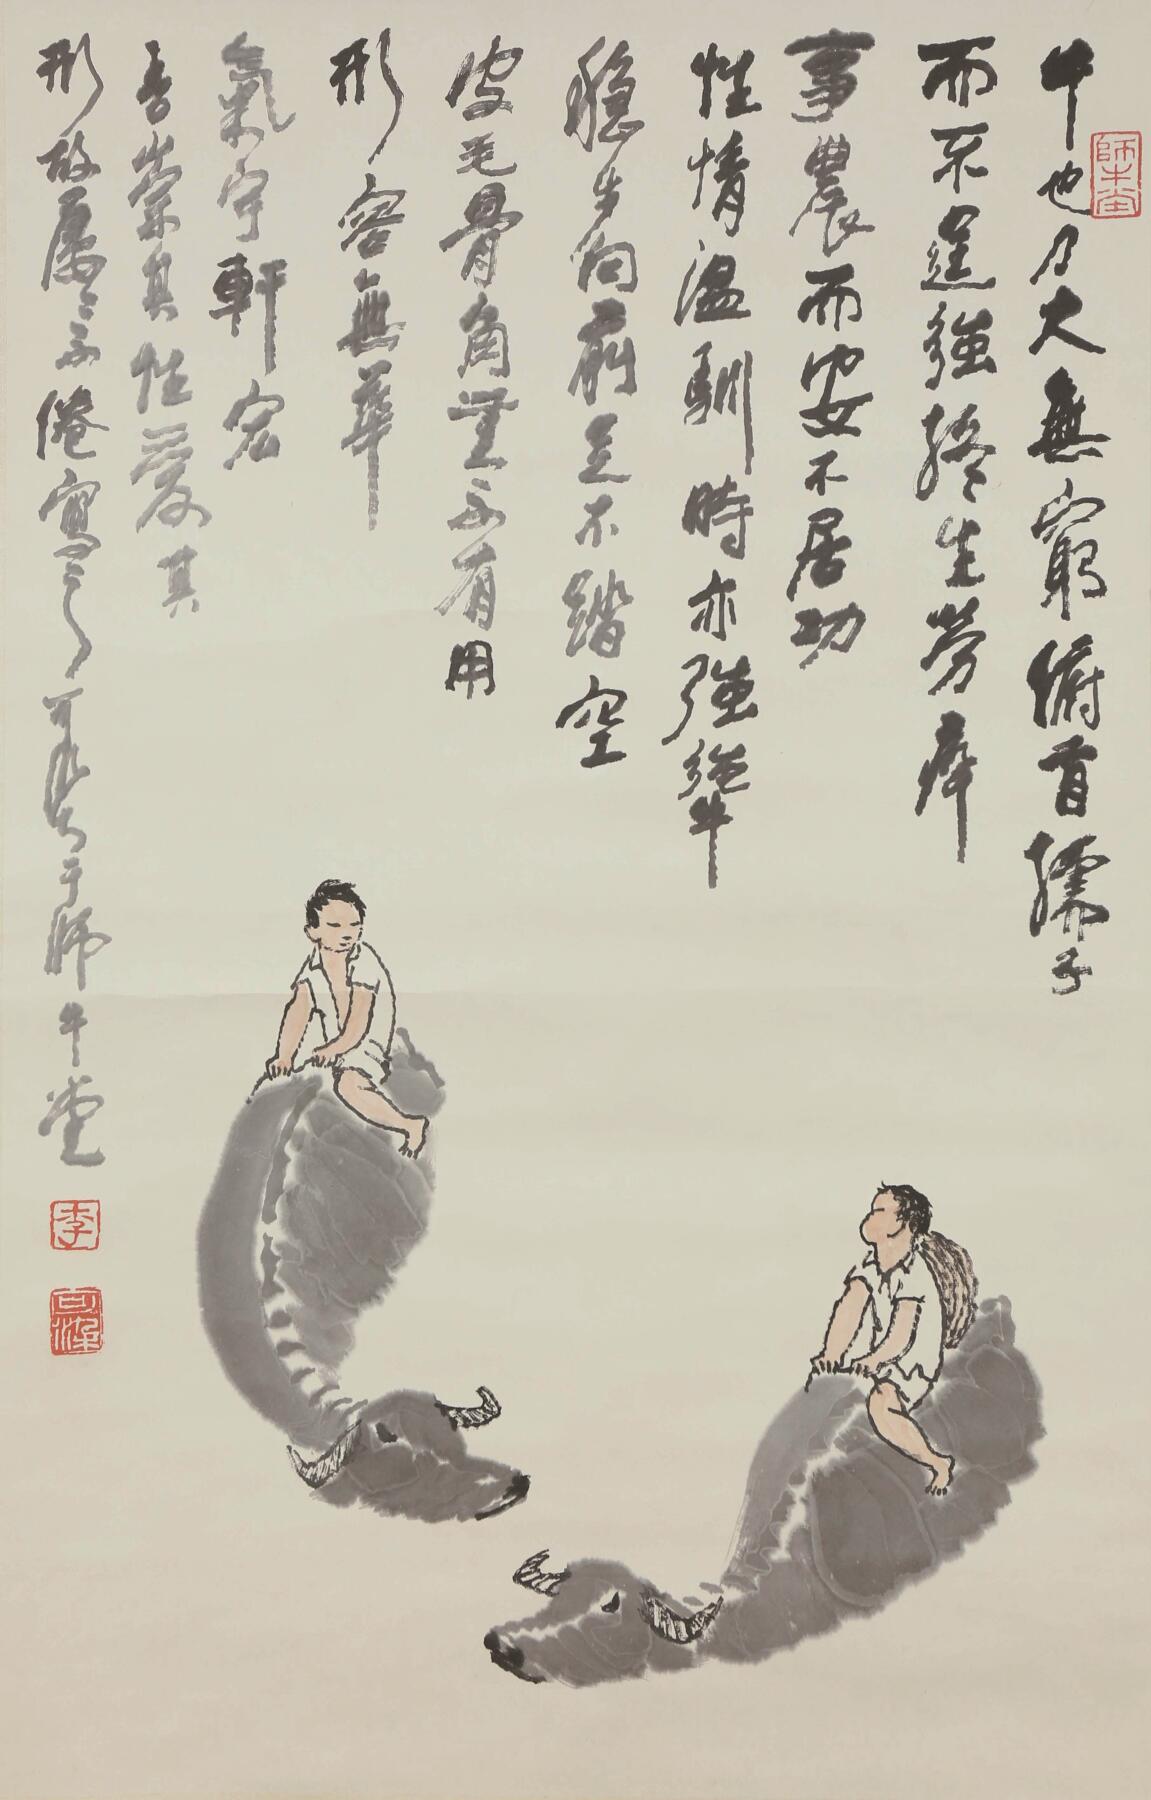 牛也力大無窮俯首孺子
而不逞強終生勞瘁
事農而安不居功
性情溫馴時亦強犟
穩步向前足不踏空
皮毛骨角無不有用
形容無華
氣宇軒宏
吾崇其性愛其
形故屢屢不倦寫之可染于師牛堂
師牛堂
李
可染